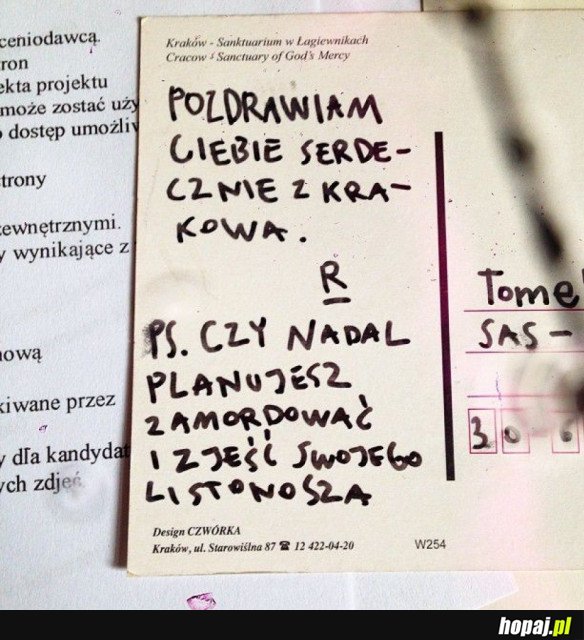 ceniodawcą.
tron
ekta projektu
może zostać uży
dostęp umożliw
strony
zewnętrznymi.
y wynikające z
ową
kiwane przez
y dla kandydat
ych zdjęć
Kraków - Sanktuarium w Łagiewnikach
Cracow - Sanctuary of God's Mercy
POZDRAWIAM
CIEBIE SERDE-
CZNIE Z KRA-
KOWA.
R
PS. CZY NADAL
PLANUJESZ
ZAMORDOWAĆ
I ZJEŚĆ SWOJEGO
LISTONOSZA
Design CZWÓRKA
Kraków, ul. Starowiślna 87 ☎ 12 422-04-20
W254
Tome
SAS-
30 6
hopaj.pl